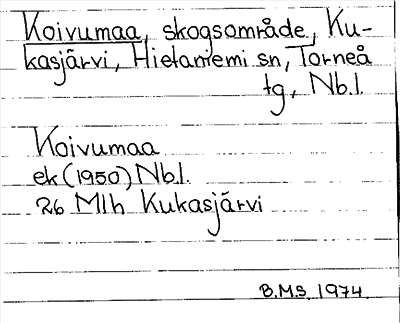 Koivumaa, skogsområde, Ku-
kasjärvi, Hietaniemi sn, Torneå
tg, Nb.l.
Koivumaa
ek (1950) Nb.l.
26 Mlh Kukasjärvi
B.M.S. 1974